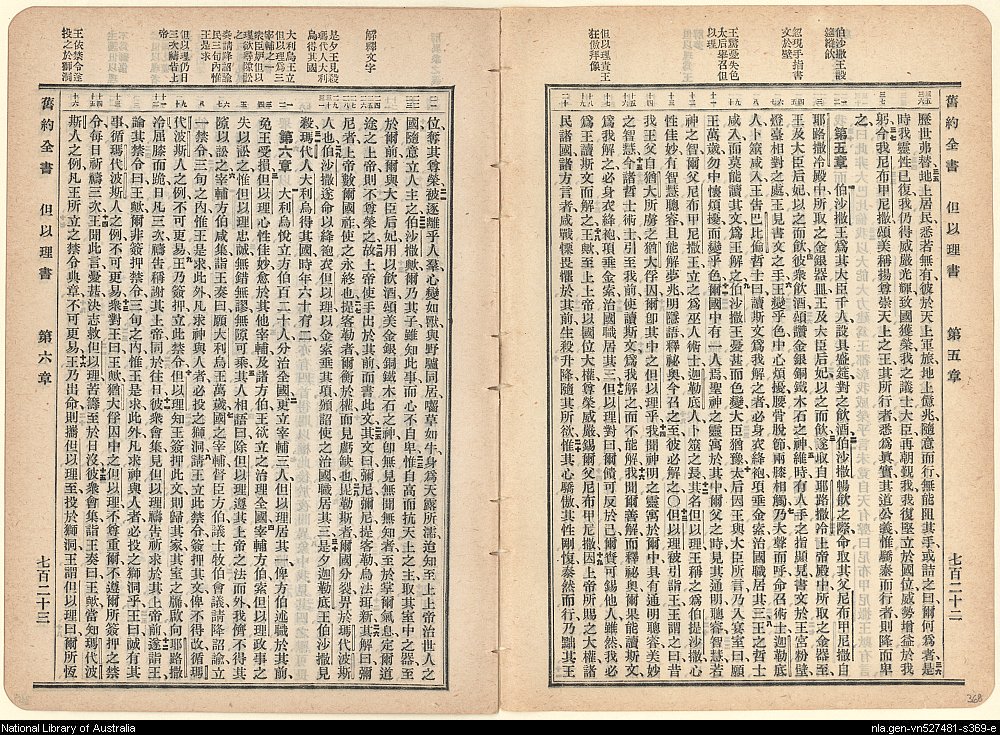 伯沙撒王設
筵縱飲
忽現手指書
文於壁
王驚憂失色
太后舉召但
以理
但以理世王
在傲拜像
舊約全書 但以理書 第五章 七百二十二
歷世弗替地上居民悉若無有彼於天上軍旅地上億兆隨意而行無能阻其手或詰之曰爾何為者是
時我靈性已復我仍得威嚴光輝致國獲榮我之議士大臣再朝觀我我復堅立於國位威勢增益於我
躬今我尼布甲尼撒頌美稱揚尊崇天上之王其所行者悉為真實其道公義惟驕泰而行者則降而卑
之
第五章 伯沙撒王為其大臣千人設具盛筵對之飲酒伯沙撒暢飲之際命取其父尼布甲尼撒自
耶路撒冷殿中所取之金銀器皿王及大臣后妃以之而飲遂取自耶路撒冷上帝殿中所取之金器至
王及大臣后妃以之而飲彼眾飲酒頌讚金銀銅鐵木石之神維時有人手之指顯見書文於王宮粉壁
燈臺相對之處王見書文之手王變乎色中心煩擾腰骨脫節兩膝相觸乃大聲而呼命召術士迦勒底
人卜筮咸入王告巴比倫哲士曰讀斯文為我解之者必身衣絳袍項垂金索治國職居其三王之哲士
咸入而莫能讀其文為王解之伯沙撒王憂甚而色變大臣猶豫太后因王與大臣所言乃入宴室曰願
王萬歲勿中懷煩擾而變乎色爾國中有一人焉聖神之靈寓於其中爾父之時見其通明聰睿智慧若
神之智爾父尼布甲尼撒王立之為巫人術士迦勒底人卜筮之長其名但以理王稱之為伯提沙撒心
性佳妙有智慧聰睿且能解夢兆明隱語釋祕奧今召之至彼必解之 但以理被引詣王王謂之曰昔
我王父自猶大所虜之猶大俘囚爾卽其中之但以理乎我聞神明之靈寓於爾中具有通明聰睿美妙
之智慧今諸哲士術士引至我前使讀斯文為我解之而不能解我聞爾善解而釋祕奧爾果能讀斯文
為我解之必身衣絳袍項垂金索治國職居其三但以理對曰爾餽可反於已爾賚可賜他人雖然我必
為王讀斯文而解之王歟至上上帝以國位大權尊榮威嚴錫爾父尼布甲尼撒因上帝所賜之大權
民諸國諸方言者咸戰慄畏懼於其前生殺升降隨其所欲惟其心驕傲其性剛愎泰然而行乃黜其王
解釋文字
是夕王見殺
瑪代人大利
烏得其國
大利烏王立
但以理為三
宰輔之一
眾臣妒但以
理欲尋隙訟
奏請降詔諭
民三旬內惟
王是求
但以理仍日
三次禱告上
帝
王依禁令遂
投之於獅洞
位奪其尊榮被逐離乎人羣心變如獸與野驢同居囓草如牛身為天露所濡迨知至上上帝治世人之
國隨意立人主之伯沙撒歟爾乃其子雖知此事而心不自卑惟自高而抗天上之主取其室中之器至
於爾前爾與大臣后妃用以飲酒頌美金銀銅鐵木石之神卽無見無聞無知者至於掌爾氣息定爾道
途之上帝則不尊榮之故上帝使手出於其前而書此文其文曰彌尼彌尼提客勒烏法珥新其解曰彌
尼者上帝數爾國祚使之永終也提客勒者爾衡於權而見虧缺也毘勒斯者爾國分裂畀於瑪代波斯
人也伯沙撒遂命以絳袍衣但以理以金索垂其項頒詔使之治國職居其三是夕迦勒底王伯沙撒見
殺瑪代人大利烏得其國時年六十有二
第六章 大利烏悅立方伯百二十人分治全國更立宰輔三人但以理居其一俾方伯述職於其前
免王受損但以理心性佳妙愈於其他宰輔及諸方伯王欲立之治理全國宰輔方伯索但以理政事之
失以訟之惟但以理忠誠無錯無謬無隙可乘其人相語曰除但以理遵其上帝之法而外我儕不得其
隙以訟之宰輔方伯咸集詣王奏曰願大利烏王萬歲國之宰輔督臣方伯議士牧伯會議請降詔諭立
一禁令三旬之內惟王是求此外凡求神與人者必投之獅洞請王立此禁令簽押其文俾不得改循瑪
代波斯人之例不可更易王乃簽押立此禁令但以理知王簽押此文則歸其家其室之牖啟向耶路撒
冷屈膝而跪日凡三次禱告稱謝其上帝同於往日彼眾會集見但以理禱告祈求於其上帝前遂詣王
論其禁令曰王歟爾非簽押禁令三旬之內惟王是求此外凡求神與人者必投之獅洞乎王曰誠有其
事循瑪代波斯人之例不可更易眾對王曰王歟猶大俘囚中之但以理不尊重爾不遵爾所簽押之禁
令每日祈禱三次王聞此言憂甚決志救但以理苦籌至於日沒彼眾會集詣王奏曰王歟當知瑪代波
斯人之例凡王所立之禁令典章不可更易王乃出命則攜但以理至投於獅洞王謂但以理曰爾所恆
舊約全書 但以理書 第六章 七百二十三
368
National Library of Australia
nla.gen-vn527481-s369-e